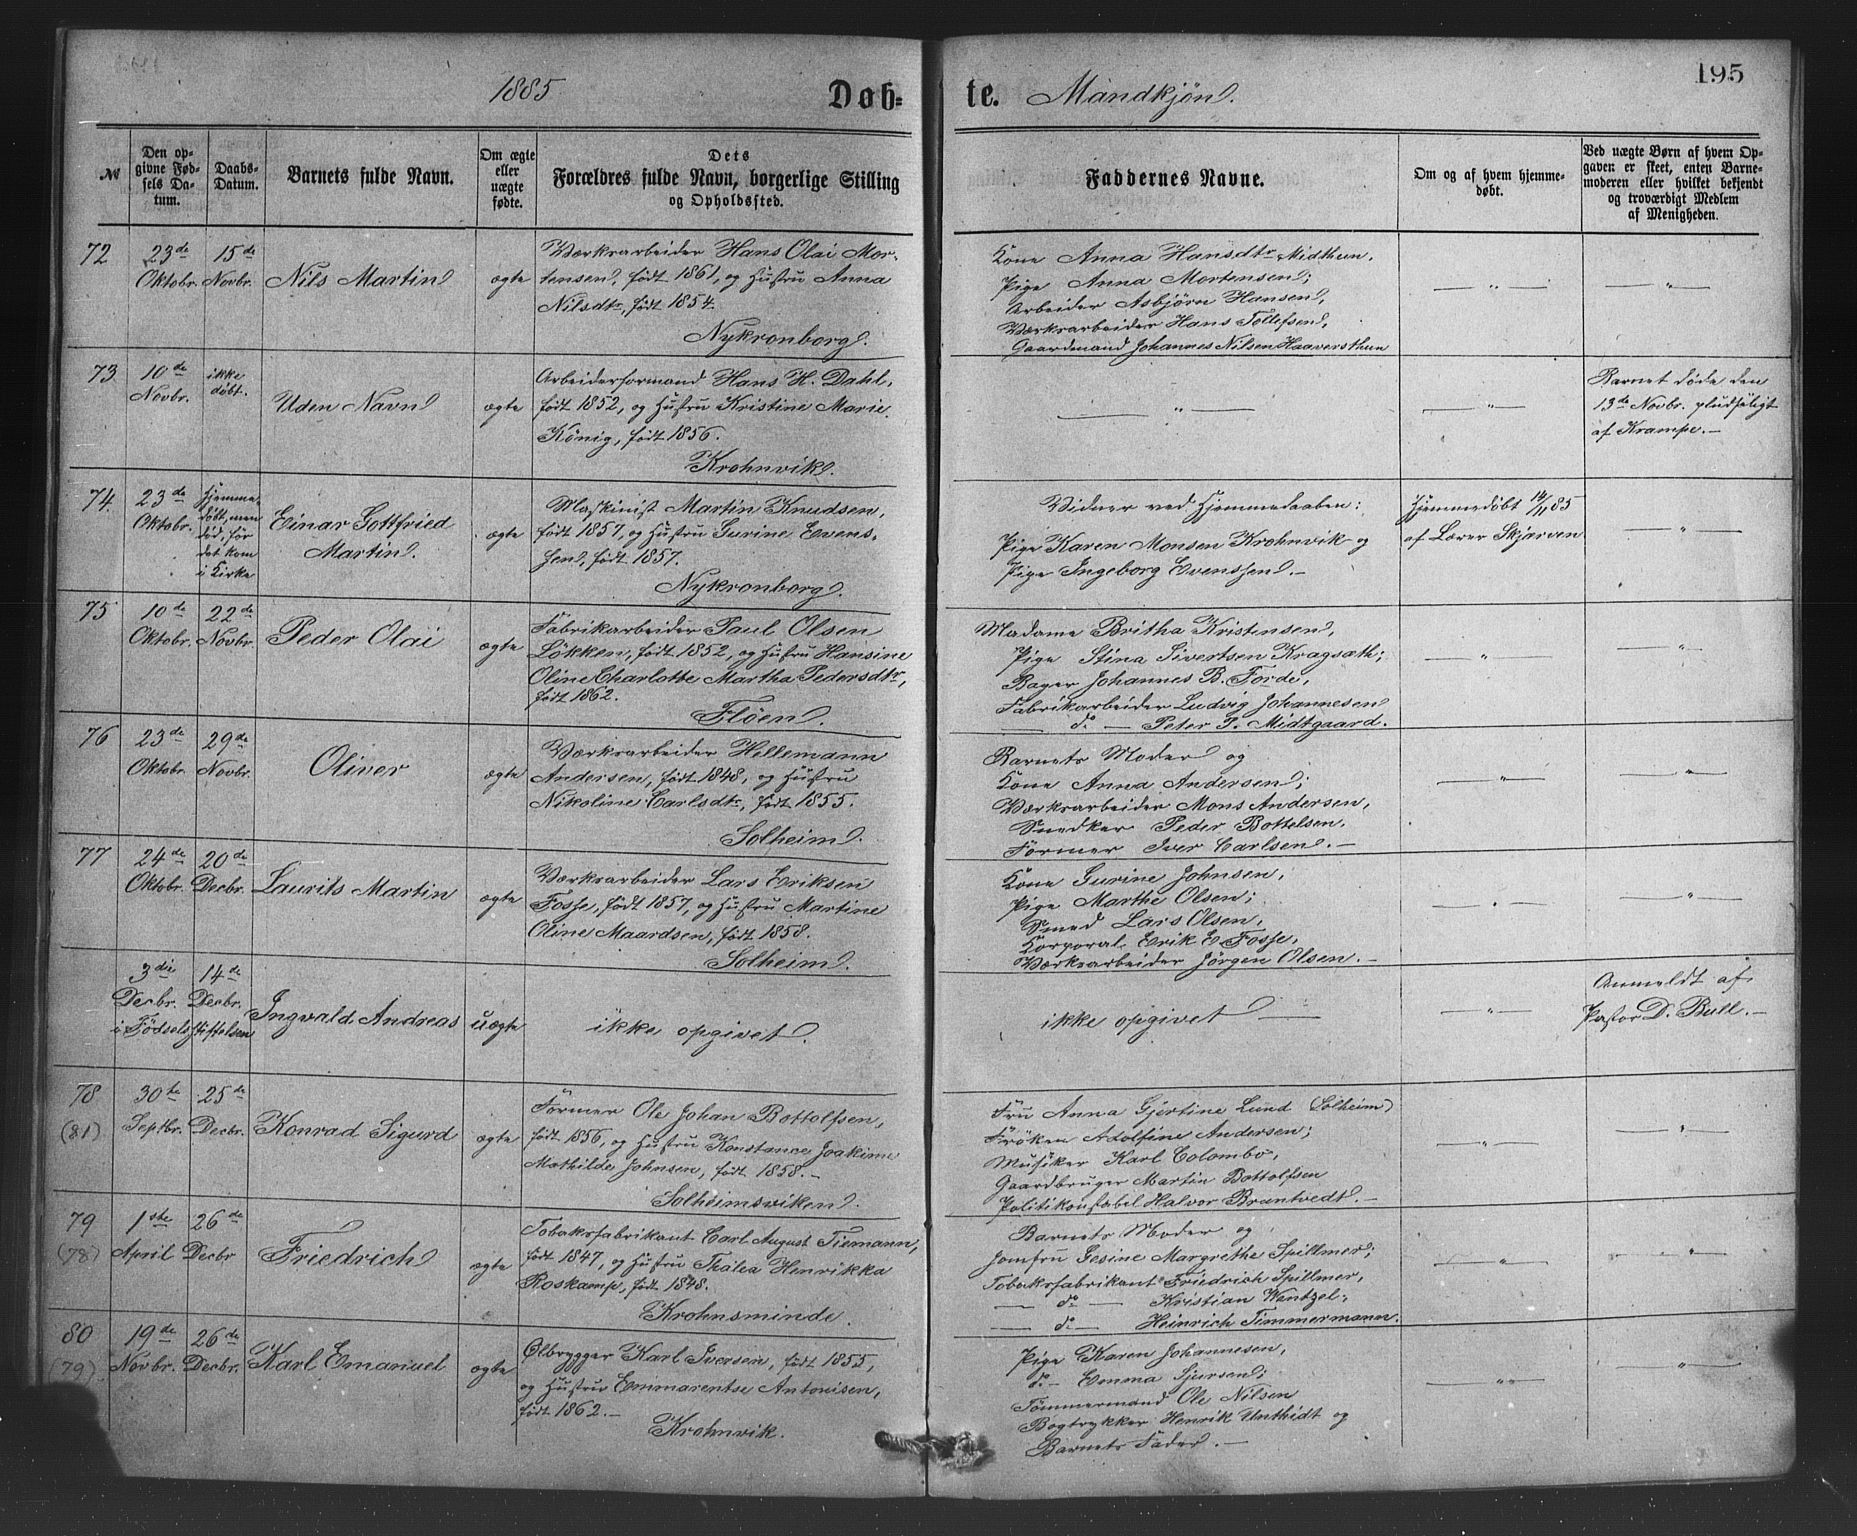 1885
Døb-
te. Mandkjøn.
195
№
Den opgivne Fødsels Datum.
Daabs-Datum.
Barnets fulde Navn.
Om ægte eller uægte fødte.
Dets Forældres fulde Navn, borgerlige Stilling og Opholdssted.
Faddernes Navne.
Om og af hvem hjemmedøbt.
Ved uægte Børn af hvem Opgaven er skeet, enten Barnemoderen eller hvilket bekjendt og troværdigt Medlem af Menigheden.
72
23de
Oktobr.
15de
Novbr.
Nils Martin
ægte
Værksarbeider Hans Olai Mor-
tensen, født 1861, og Hustru Anna
Nilsdtr, født 1854.
Nykronborg.
Kone Anna Hansdtr Midthun,
Pige Anna Mortensen;
Arbeider Asbjørn Hansen,
Værksarbeider Hans Tollefsen,
Gaardmand Johannes Nilsen Haaversthun
— " —
— " —
73
10de
Novbr.
ikke
døbt.
Uden Navn
ægte
Arbeiderformand Hans H. Dahl,
født 1852, og Hustru Kristine Marie
König, født 1856.
Krohnvik.
— " —
— " —
Barnet døde den
13de Novbr. pludseligt
af Krampe. —
74.
23de
Oktobr.
Hjemme-
døbt, men
død, før
det kom
i Kirke
Einar Gottfried
Martin.
ægte
Maskinist Martin Knudsen,
født 1857, og Hustru Gurine Evens-
sen, født 1857.
Nykronborg.
Vidner ved Hjemmedaaben:
Pige Karen Monsen Krohnvik og
Pige Ingeborg Evenssen. —
Hjemmedøbt 14/11 85
af Lærer Skjarven
— " —
75
10de
Oktobr.
22de
Novbr.
Peder Olai
ægte
Fabrikarbeider Paul Olsen
Løkken, født 1852, og Hustru Hansine
Oline Charlotte Martha Pedersdtr,
født 1862.
Fløen.
Madame Britha Kristensen,
Pige Stina Sivertsen Kragsæth;
Bager Johannes B. Førde,
Fabrikarbeider Ludvig Johannesen
— do — Peter P. Midtgaard.
— " —
— " —
76
23de
Oktobr.
29de
Novbr.
Oliver
ægte
Værksarbeider Hillemann
Andersen, født 1848, og Hustru
Nikoline Carlsdtr, født 1855.
Solheim.
Barnets Moder og
Kone Anna Andersen;
Værksarbeider Mons Andersen,
Snedker Peder Bottelsen,
Former Iver Carlsen. —
— " —
— " —
77
24de
Oktobr.
20de
Decbr.
Laurits Martin
ægte
Værksarbeider Lars Eriksen
Fosse, født 1857, og Hustru Martine
Oline Maardsen, født 1858.
Solheim.
Kone Gurine Johnsen,
Pige Marthe Olsen;
Smed Lars Olsen,
Korporal Erik E. Fosse,
Værksarbeider Jørgen Olsen. —
— " —
— " —
3die
Decbr.
14de
Decbr.
i Fødselsstiftelsen
Ingvald Andreas
uægte
ikke opgivet.
ikke opgivet —
— " —
Anmeldt af
Pastor D. Bull. —
78
(81)
30te
Septbr.
25de
Decbr.
Konrad Sigurd
ægte
Former Ole Johan Bottolfsen,
født 1856, og Hustru Konstance Joakime
Mathilde Johnsen, født 1858. —
Solheimsviken.
Fru Anna Gjertine Lund (Solheim)
Frøken Adolfine Andersen;
Musiker Karl Colombo,
Gaardbruger Martin Bottolfsen
Politikonstabel Halvor Brantvedt. —
— " —
— " —
79
(78)
1ste
April
26de
Decbr
Friedrich
ægte
Tobaksfabrikant Carl August Tiemann,
født 1847, og Hustru Thalea Henrikka
Roskamp, født 1848.
Krohnsminde.
Barnets Moder og
Jomfru Gesine Margrethe Spillmer;
Tobaksfabrikant Friedrich Spillmer,
— do — Kristian Wentzel,
— do — Heinrich Timmermann.
— " —
— " —
80
(79)
19de
Novbr.
26de
Decbr.
Karl Emanuel
ægte
Ølbrygger Karl Iversen, født 1855,
og Hustru Emmarentse Antonisen,
født 1862. —
Krohnvik.
Pige Karen Johannesen,
do — Emma Sjursen;
Tømmermand Ole Nilsen
Bogtrykker Henrik Unthidt og
Barnets Fader. —
— " " —
— " —